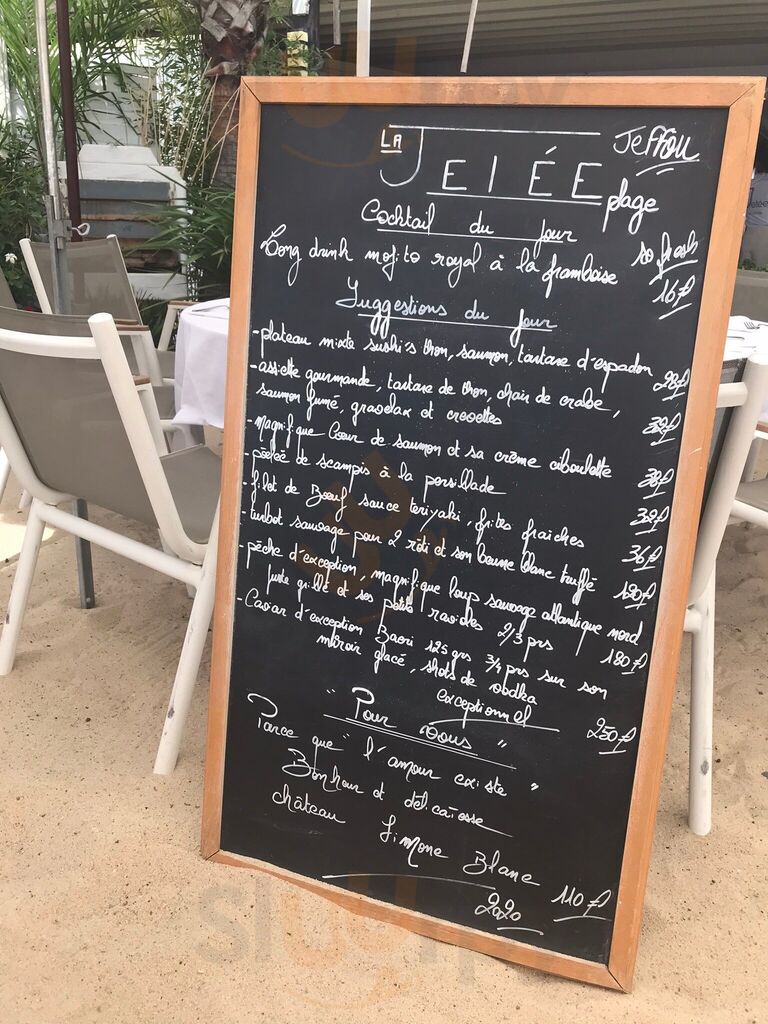 LA JEIÉE Jeffou
plage
Cocktail du jour
Long drink mojito royal à la framboise so fresh
16€
Suggestions du jour
-plateau mixte sushi's thon, saumon, tartare d'espadon 28€
-assiette gourmande, tartare de thon, chair de crabe,
saumon fumé, gravelax et crevettes 32€
-Magnifique Cœur de saumon et sa crème ciboulette
-poêlée de scampis à la persillade
-filet de Bœuf sauce teriyaki, frites fraiches 36€
-turbot sauvage pour 2 rôti et son beurre blanc truffé
-pêche d'exception, magnifique loup sauvage atlantique nord
juste grillé et ses petits 2/3 prs 180€
-Caviar d'exception Baeri 125 grs 3/4 prs sur son
miroir glacé, shots de vodka
exceptionnel 250€
"Pour Vous"
Parce que "l'amour existe"
Bonheur et délicatesse
château Simone Blanc 110€
2020